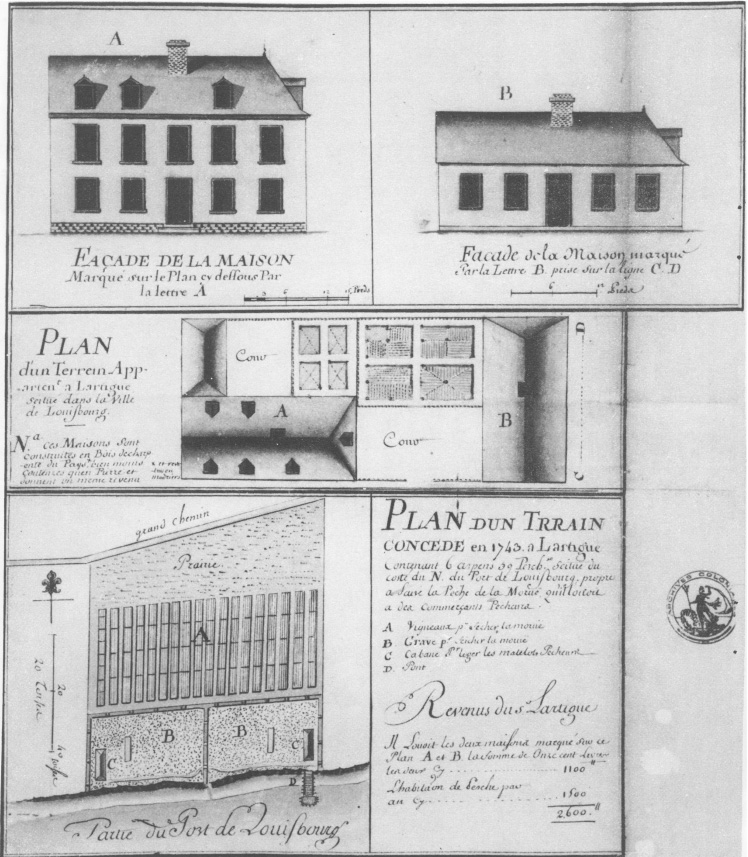 A
FAÇADE DE LA MAISON
Marqué sur le Plan cy dessous Par
la lettre A
B
Facade de la Maison marqué
Par la Lettre B. prise sur la ligne C. D
6
Pieds
PLAN
d'un Terrein App-
artent a Lartigue
scitué dans la Ville
de Louisbourg.
Na ces Maisons Sont
construites en Bois de charp-
ente du Pays, bien moins
Couteuses qu'en Pierre et
donnent un meme revenu
Cour
A
Cour
B
D
C
grand chemin
Prairie
A
20
20 Toises
B
B
C
C
D
Partie du Port de Louisbourg
PLAN DUN TRRAIN
CONCEDE en 1743. a Lartigue
Contenant 6 arpens 39 Perch. scitué du
costé du N. du Port de Louisbourg, propre
a faire la Peche de la Moruë qu'il loüoit
a des Commerçants Pecheurs.
A Vigneaux pr secher la moruë
B Grave pr secher la moruë
C Cabane Pr loger les matelots Pecheurs
D. Pont
Revenus du Sr. Lartigue
Il Loüoit les deux maisons marqué sur ce
Plan A et B. la somme de Onze cent livres
les deux Cy 1100"
L'habitãon de Peche par
an Cy 1500
2600."
ARCHIVES COLONIALES